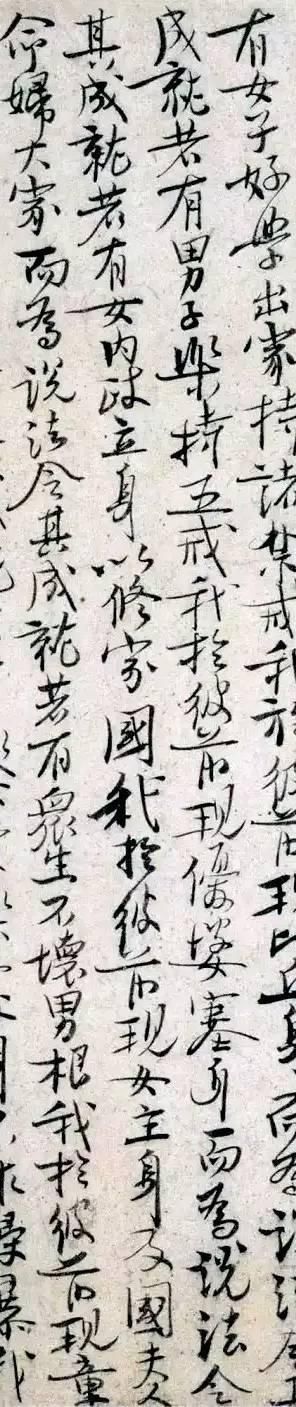 有女子好學出家持諸禁戒我於彼前現比丘身而為說法令
成就若有男子樂持五戒我於彼前現優婆塞身而為說法令
其成就若有女內政立身以修家國我於彼前現女主身及國夫人
命婦大家而為說法令其成就若有眾生不壞男根我於彼前現童